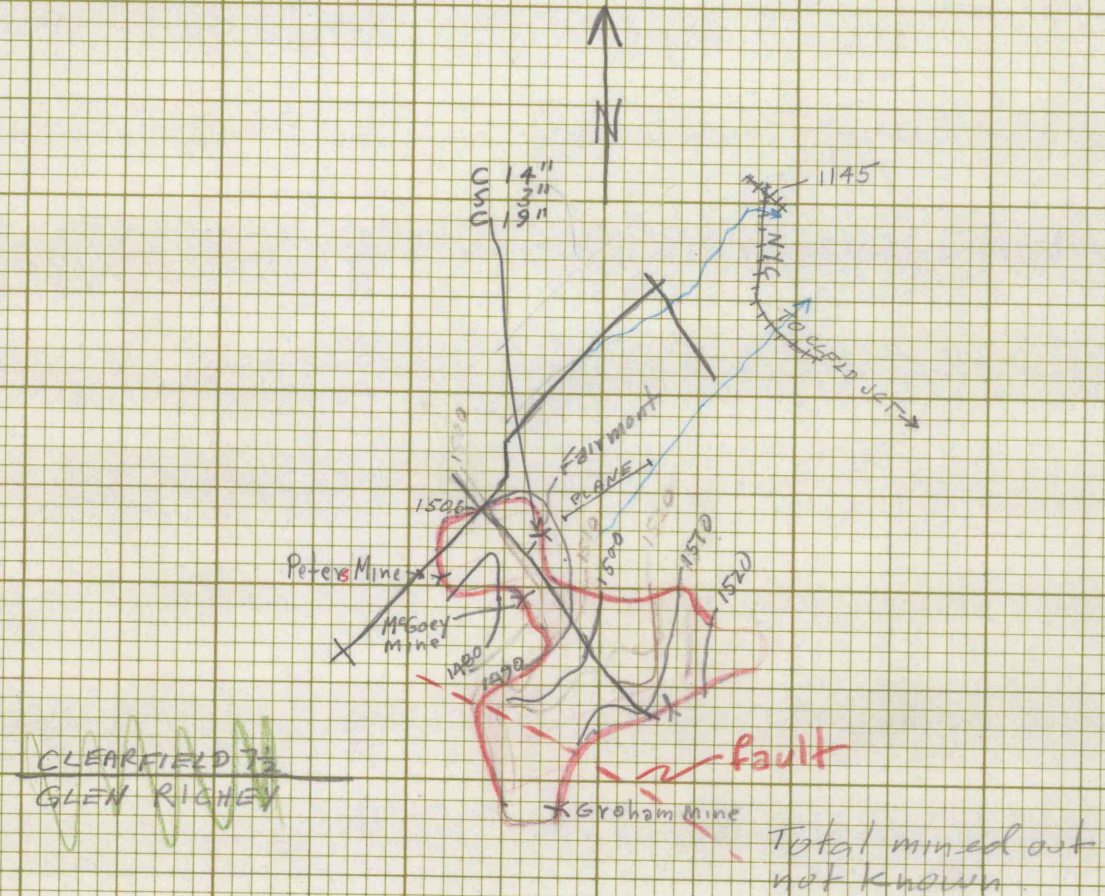 N
C 14"
S 3"
C 19"
1145
N.Y.C
TO CLFLD JCT
Fairmont
PLANE
1500
1506
1510
1500
1510
1520
Peters Mine
McGoey
Mine
1480
1490
fault
CLEARFIELD 7½
GLEN RICHEY
Graham Mine
Total mined out
not known